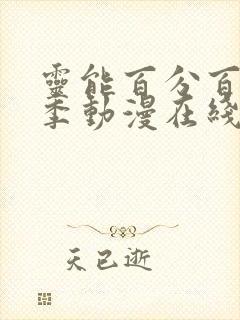 靈能百分百
季動漫在綫
天已逝